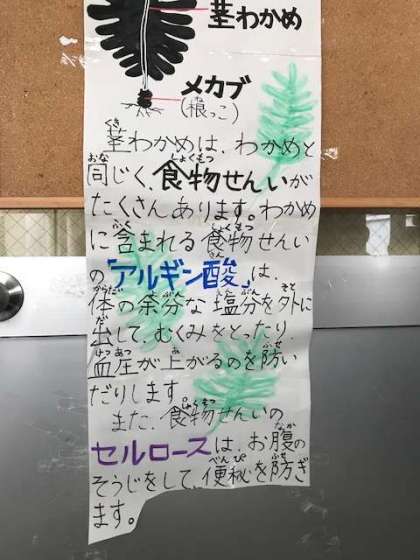 茎わかめ
メカブ
(根っこ)
茎わかめは、わかめと
同じく、食物せんいが
たくさんあります。わかめ
に含まれる食物せんい
の「アルギン酸」は、
体の余分な塩分を外に
出して、むくみをとったり、
血圧が上がるのを防い
だりします。
また、食物せんいの
セルロースは、お腹の
そうじをして、便秘を防ぎ
ます。